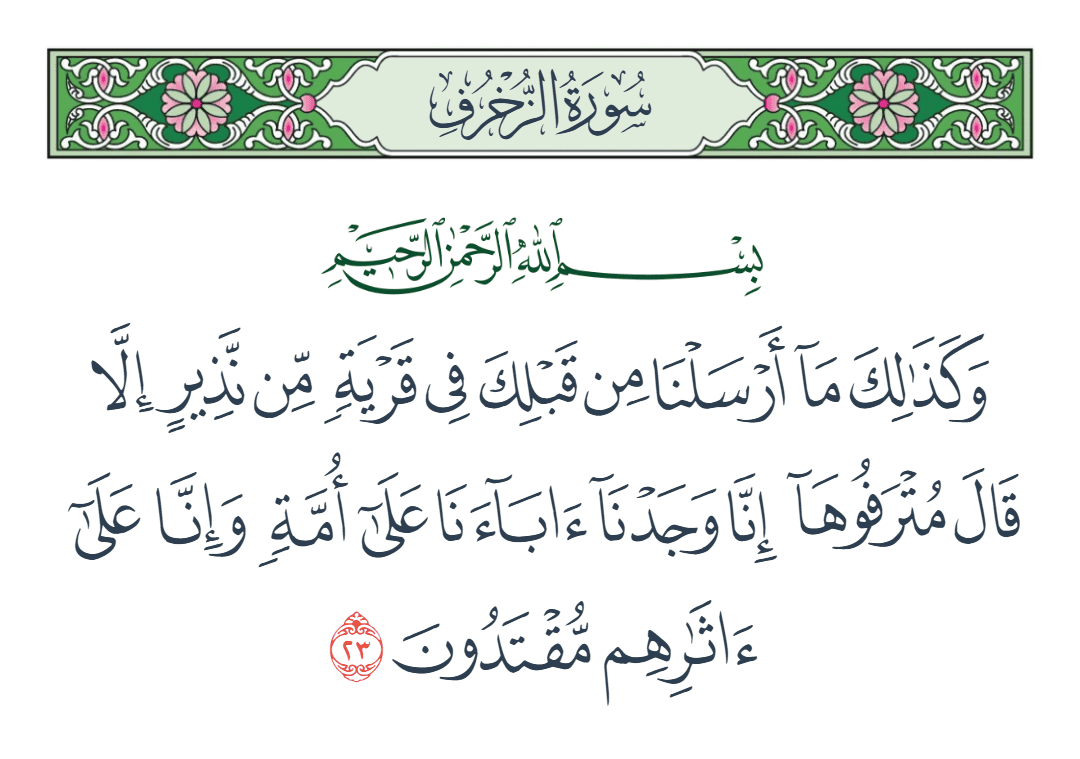 سُورَةُ الزُّخْرُفِ
بِسْمِ ٱللَّهِ ٱلرَّحْمَٰنِ ٱلرَّحِيمِ
وَكَذَٰلِكَ مَآ أَرْسَلْنَا مِن قَبْلِكَ فِى قَرْيَةٍ مِّن نَّذِيرٍ إِلَّا
قَالَ مُتْرَفُوهَآ إِنَّا وَجَدْنَآ ءَابَآءَنَا عَلَىٰٓ أُمَّةٍ وَإِنَّا عَلَىٰٓ
ءَاثَٰرِهِم مُّقْتَدُونَ ٢٣